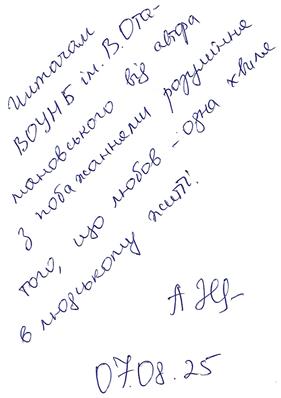 Читачам
ВОУНБ ім. В. Ота-
мановського від автора
З побажаннями розуміння
того, що любов - одна хвиля
в людському житті!
07.08.25